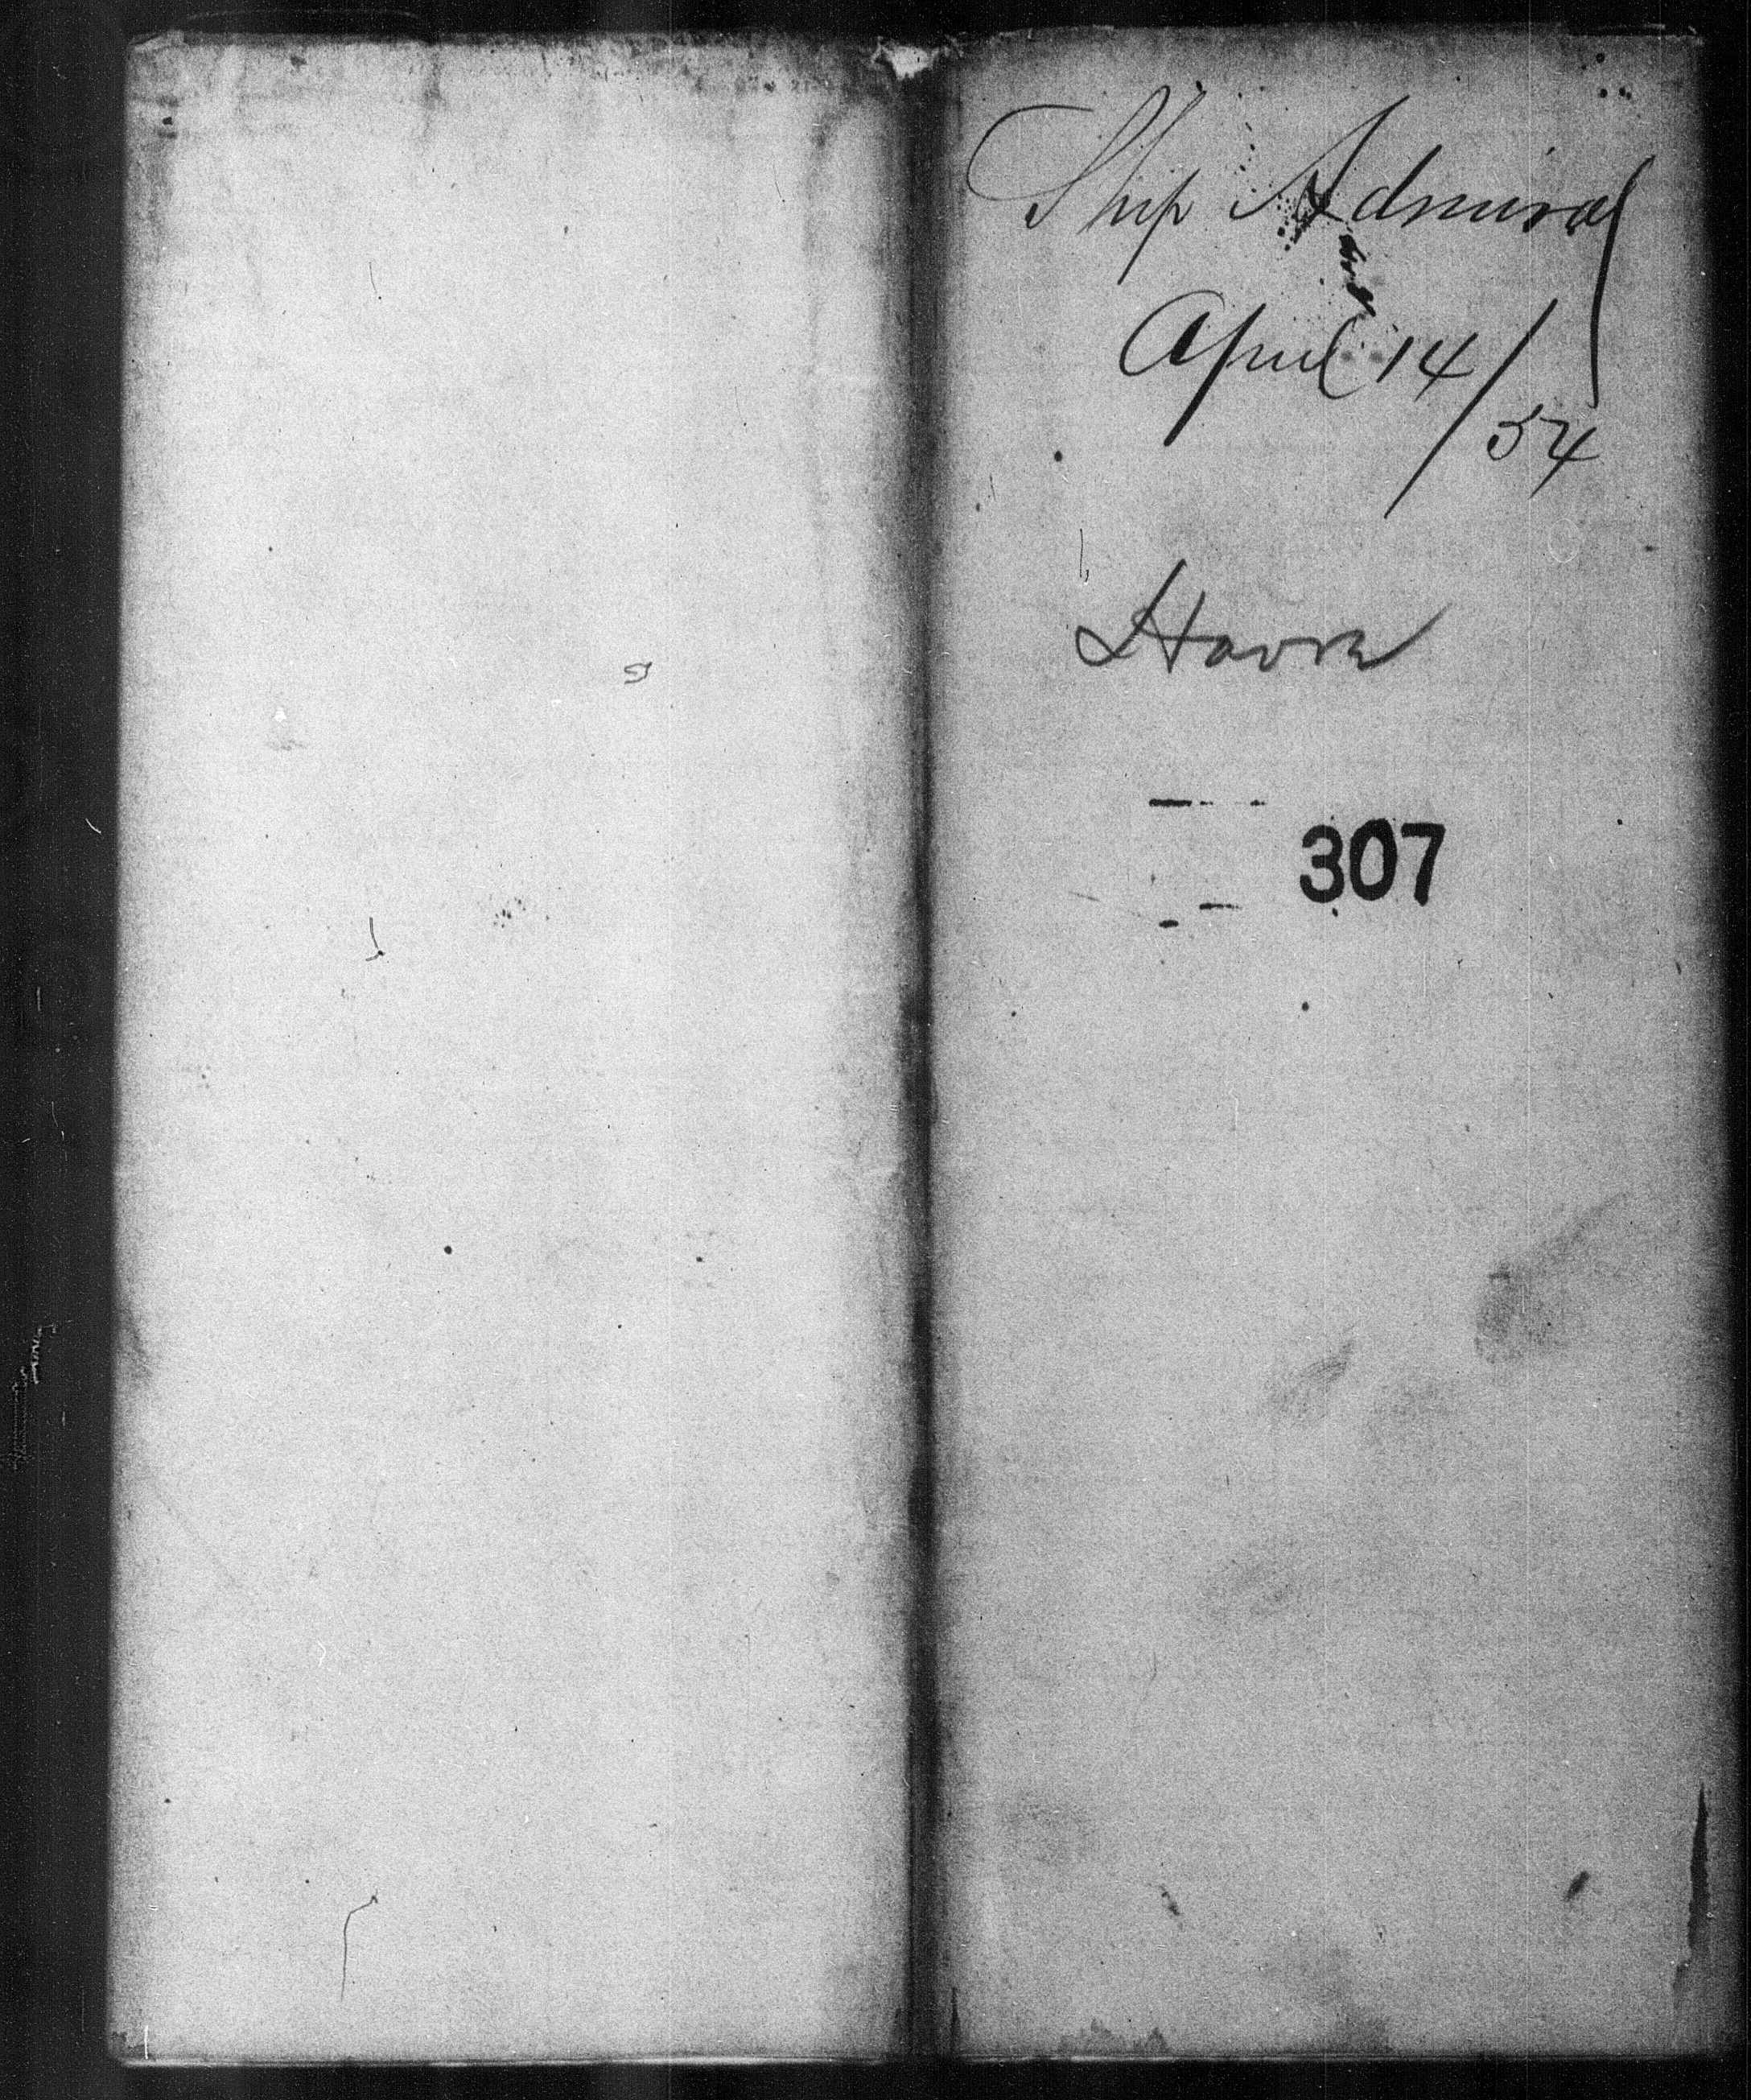 Ship Admiral
April 14/54
Havre
307